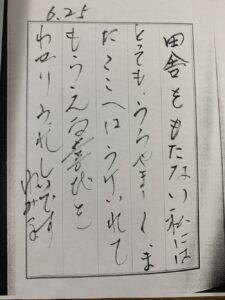 6.25
田舎をもたない私には
とても、うらやましく、ま
たここへはうけいれて
もらえる基地を
わかりうれしいです